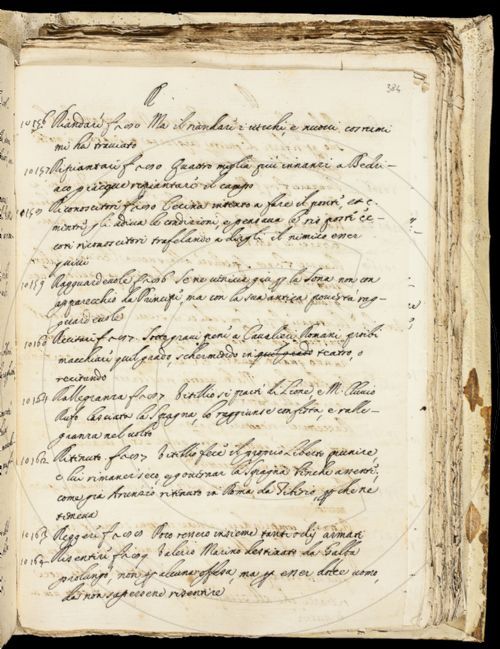 R
384
10156 Riandare f. 290 Ma il riandare i vecchi, e nuovi costumi
mi ha traviato
10157 Ripiantare f. 290 Quattro miglia più innanzi a Bedri-
aco piacque ripiantare il campo
Riconoscitori f. 290 Cecina intento a fare il ponte
le condizioni, e pensava
cori riconoscitori trafelando a dirgli il nimico esser
quivi
10159 Ragguardevole f. 296 Se ne veniva giù la sona non con
apparecchio da Principi ma con la sua antica povertà rag-
guardevole
Sotto gravi pene a Cavalieri Romani proibì
macchiare quel grado, schermendo in teatro, o
recitando
Rallegranza Vitellio si partì di Lione, e M. Cluvio
Rufo lasciata la Spagna, lo raggiunse con festa, e ralle-
granza nel volto
10162 Ritinuto Vitellio fece il proprio Liberto punire,
e lui rimaner seco, e governar la Spagna benche assente,
come già Arunzio ritinuto in Roma da Tiberio che ne
temeva
10163 Reggere Poco ressero insieme tanti odj armati
Risentire Valerio Marino destinato da Galba
prolungò, non alcuna offesa, ma esser dolce uomo,
da non sapersene risentire